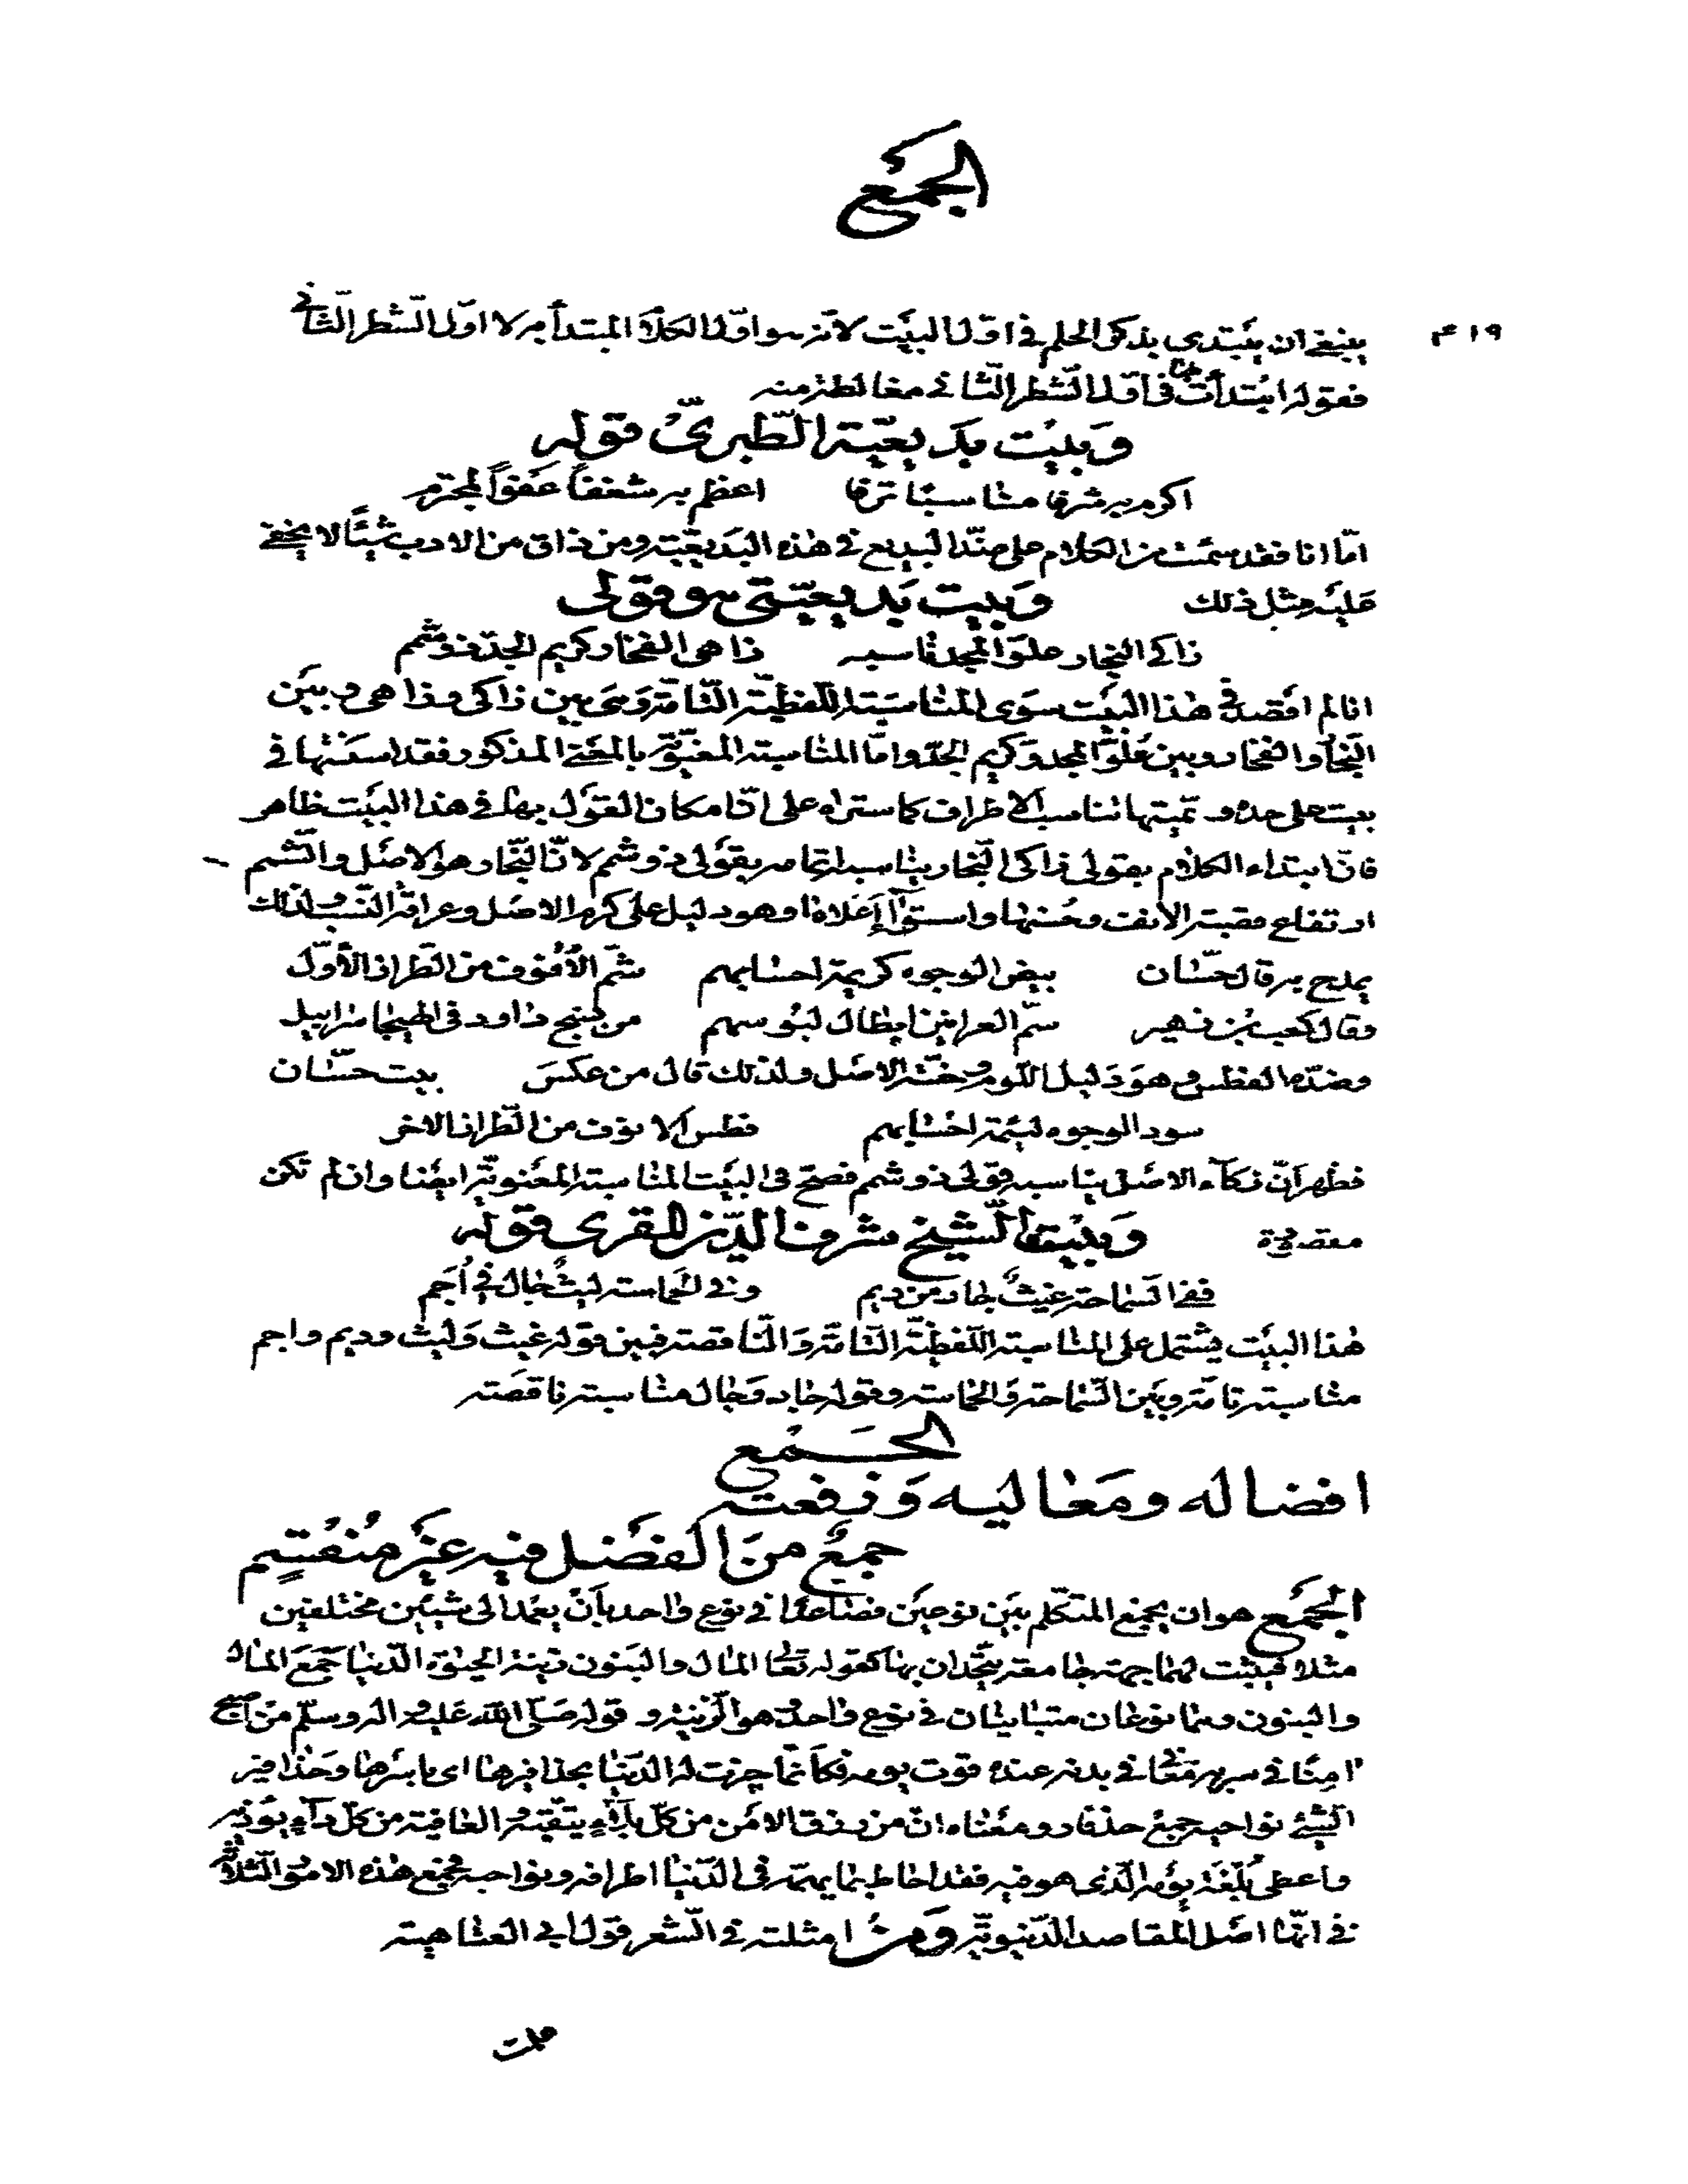 الجمع
٤١٩
ينبغي ان يبتدي بذكر الحلم في اوّل البيت لانه هو اوّل الكلام المبتدأ به لا اوّل الشطر الثاني
فقوله ابتدأت بها في اوّل الشطر الثاني مغالطة منه
وبيت بديعيّة الطبريّ قوله
اكرم به شرفا مناسبا ترفا اعظم به شغفاً عفواً لمجترم
امّا انا فقد سئمت من الكلام على هذا البديع في هذه البديعيّة ومن ذاق من الادب شيئًا لا يخفى
عليه مثل ذلك وبيت بديعيّتي هو قولي
زاكي النجار علوّ المجد ناسبه زاهي الفخار كريم الجدّ ذو شمم
انا لم اقصد في هذا البيت سوى المناسبة اللفظيّة التامّة وهي بين زاكي وزاهي وبين
النجار والفخار وبين علوّ المجد وكريم الجدّ وامّا المناسبة المعنويّة بالمعنى المذكور فقد اسفتها في
بيت على حده وتميتها تناسب الاطراف كما ستراه على انّ امكان القول بها في هذا البيت ظاهر
فانّ ابتداء الكلام بقولي زاكي النّجار يناسبه اتمامه بقولي ذو شمم لانّ النّجار هو الاصل والشّمم
ارتفاع قصبة الانف وحسنها واستوآ اعلاها وهو دليل على كرم الاصل وعراقة النسب ولذلك
يمدح به قال حسّان بيض الوجوه كريمة احسابهم شمّ الأنوف من الطراز الأوّل
وقال كعب بن زهير شمّ العرانين ابطال لبوسهم من نسج داود في الهيجا سرابيل
وضدّه الفطس وهو دليل اللوم وخسّة الاصل ولذلك قال من عكس بيت حسّان
سود الوجوه لئيمة احسابهم فطس الانوف من الطراز الاخر
فظهر انّ زكآء الاصل يناسبه قولي ذو شمم فصحّ في البيت المناسبة المعنويّة ايضا وان لم تكن
مقصودة وبيت الشيخ شرف الدّين المقري قوله
ففي السّماحة غيث جاد من ديم وفي الحماسة ليث جال في أجم
هذا البيت يشتمل على المناسبة اللفظيّة التامّة والنّاقصة فبين قوله غيث وليث وديم واجم
مناسبة تامّة وبين السّماحة والحماسة وقوله جاد وجال مناسبة ناقصة
الجمع
افضاله ومعاليه ورفعته
جمع من الفضل فيه غير منقسم
الجمع هو ان يجمع المتكلّم بين نوعين فصاعدا في نوع واحد بأن يعمد الى شيئين مختلفين
مثلا فيثبت لهما جهة جامعة يتّحدان بها كقوله تعالى المال والبنون زينة الحيوة الدّنيا جمع المال
والبنون وهما نوعان متباينان في نوع واحد وهو الزّينة و قوله صلّى الله عليه واله وسلّم من اصبح
امنًا في سربه معافى في بدنه عنده قوت يومه فكأنّما حيزت له الدّنيا بحذافيرها اى باسرها وحذافير
الشيئ نواحيه جمع حذفار ومعناه انّ من رزق الامن من كلّ بآفة يتّقيه والعافية من كلّ دآء يؤذيه
واعطى بلغة يومه الّذى هو فيه فقد احاط بما يهمّه في الدّنيا اطرافه ونواحيه فجمع هذه الامور الثّلاثة
في انّها اصل المقاصد الدّنيويّة ومن امثلته في الشّعر قول ابي العتاهية